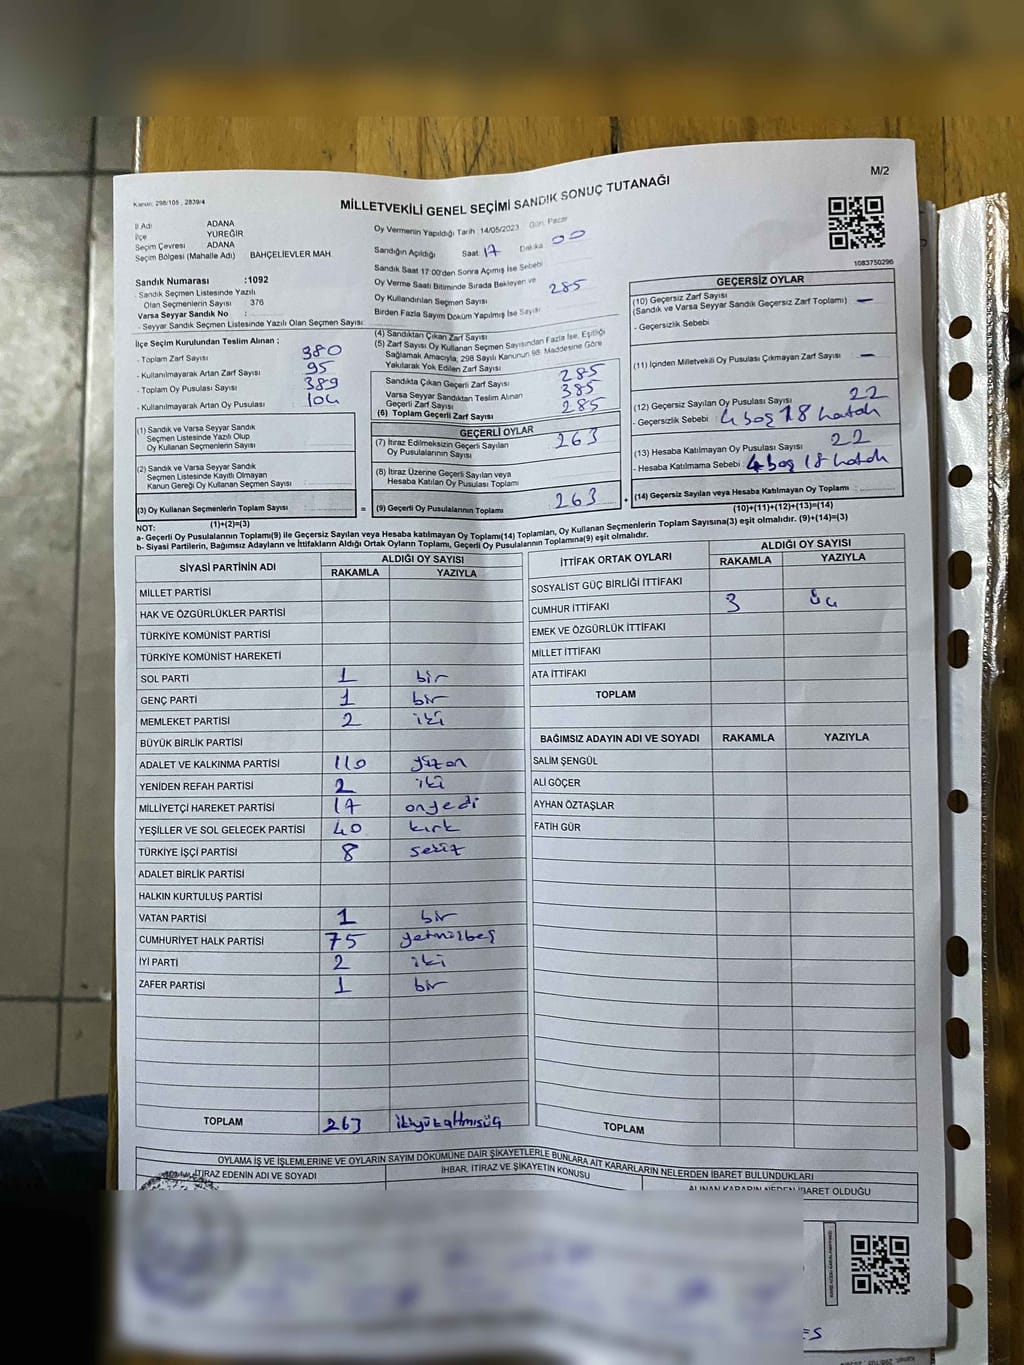 M/2
Kanun: 298/105 , 2839/4
MİLLETVEKİLİ GENEL SEÇİMİ SANDIK SONUÇ TUTANAĞI
İl Adı ADANA
İlçe YÜREĞİR
Seçim Çevresi ADANA
Seçim Bölgesi (Mahalle Adı) BAHÇELİEVLER MAH.
Sandık Numarası :1092
Sandık Seçmen Listesinde Yazılı
Olan Seçmenlerin Sayısı 376
Varsa Seyyar Sandık No :
- Seyyar Sandık Seçmen Listesinde Yazılı Olan Seçmen Sayısı:
İlçe Seçim Kurulundan Teslim Alınan ;
- Toplam Zarf Sayısı : 380
- Kullanılmayarak Artan Zarf Sayısı : 95
- Toplam Oy Pusulası Sayısı : 389
- Kullanılmayarak Artan Oy Pusulası : 104
(1) Sandık ve Varsa Seyyar Sandık
Seçmen Listesinde Yazılı Olup
Oy Kullanan Seçmenlerin Sayısı
(2) Sandık ve Varsa Seyyar Sandık
Seçmen Listesinde Kayıtlı Olmayan
Kanun Gereği Oy Kullanan Seçmen Sayısı
(3) Oy Kullanan Seçmenlerin Toplam Sayısı
(1)+(2)=(3)
Oy Vermenin Yapıldığı Tarih 14/05/2023 Gün: Pazar
Sandığın Açıldığı Saat 17 Dakika 00
Sandık Saat 17:00'den Sonra Açımış İse Sebebi
Oy Verme Saati Bitiminde Sırada Bekleyen ve
Oy Kullandırılan Seçmen Sayısı 285
Birden Fazla Sayım Döküm Yapılmış İse Sayısı
(4) Sandıktan Çıkan Zarf Sayısı
(5) Zarf Sayısı Oy Kullanan Seçmen Sayısından Fazla İse, Eşitliği
Sağlamak Amacıyla; 298 Sayılı Kanunun 98. Maddesine Göre
Yakılarak Yok Edilen Zarf Sayısı
Sandıkta Çıkan Geçerli Zarf Sayısı 285
Varsa Seyyar Sandıktan Teslim Alınan
Geçerli Zarf Sayısı 385
(6) Toplam Geçerli Zarf Sayısı 285
GEÇERLİ OYLAR
(7) İtiraz Edilmeksizin Geçerli Sayılan
Oy Pusulalarının Sayısı 263
(8) İtiraz Üzerine Geçerli Sayılan veya
Hesaba Katılan Oy Pusulası Toplamı
= (9) Geçerli Oy Pusulalarının Toplamı 263 +
1083750296
GEÇERSİZ OYLAR
(10) Geçersiz Zarf Sayısı
(Sandık ve Varsa Seyyar Sandık Geçersiz Zarf Toplamı) —
- Geçersizlik Sebebi
(11) İçinden Milletvekili Oy Pusulası Çıkmayan Zarf Sayısı —
(12) Geçersiz Sayılan Oy Pusulası Sayısı 22
- Geçersizlik Sebebi 4 boş 18 hatalı
(13) Hesaba Katılmayan Oy Pusulası Sayısı 22
- Hesaba Katılmama Sebebi 4 boş 18 hatalı
(14) Geçersiz Sayılan veya Hesaba Katılmayan Oy Toplamı
(10)+(11)+(12)+(13)=(14)
NOT:
a- Geçerli Oy Pusulalarının Toplamı(9) ile Geçersiz Sayılan veya Hesaba katılmayan Oy Toplamı(14) Toplamları, Oy Kullanan Seçmenlerin Toplam Sayısına(3) eşit olmalıdır. (9)+(14)=(3)
b- Siyasi Partilerin, Bağımsız Adayların ve İttifakların Aldığı Ortak Oyların Toplamı, Geçerli Oy Pusulalarının Toplamına(9) eşit olmalıdır.
SİYASİ PARTİNİN ADI
ALDIĞI OY SAYISI
RAKAMLA YAZIYLA
MİLLET PARTİSİ
HAK VE ÖZGÜRLÜKLER PARTİSİ
TÜRKİYE KOMÜNİST PARTİSİ
TÜRKİYE KOMÜNİST HAREKETİ
SOL PARTİ 1 bir
GENÇ PARTİ 1 bir
MEMLEKET PARTİSİ 2 iki
BÜYÜK BİRLİK PARTİSİ
ADALET VE KALKINMA PARTİSİ 110 yüzon
YENİDEN REFAH PARTİSİ 2 iki
MİLLİYETÇİ HAREKET PARTİSİ 17 onyedi
YEŞİLLER VE SOL GELECEK PARTİSİ 40 kırk
TÜRKİYE İŞÇİ PARTİSİ 8 sekiz
ADALET BİRLİK PARTİSİ
HALKIN KURTULUŞ PARTİSİ
VATAN PARTİSİ 1 bir
CUMHURİYET HALK PARTİSİ 75 yetmişbeş
İYİ PARTİ 2 iki
ZAFER PARTİSİ 1 bir
TOPLAM 263 ikiyüzaltmışüç
İTTİFAK ORTAK OYLARI
ALDIĞI OY SAYISI
RAKAMLA YAZIYLA
SOSYALİST GÜÇ BİRLİĞİ İTTİFAKI
CUMHUR İTTİFAKI 3 üç
EMEK VE ÖZGÜRLÜK İTTİFAKI
MİLLET İTTİFAKI
ATA İTTİFAKI
TOPLAM
BAĞIMSIZ ADAYIN ADI VE SOYADI RAKAMLA YAZIYLA
SALİM ŞENGÜL
ALİ GÖÇER
AYHAN ÖZTAŞLAR
FATİH GÜR
TOPLAM
OYLAMA İŞ VE İŞLEMLERİNE VE OYLARIN SAYIM DÖKÜMÜNE DAİR ŞİKAYETLERLE BUNLARA AİT KARARLARIN NELERDEN İBARET BULUNDUKLARI
İTİRAZ EDENİN ADI VE SOYADI
İHBAR, İTİRAZ VE ŞİKAYETİN KONUSU
ALINAN KARARIN NEDEN İBARET OLDUĞU